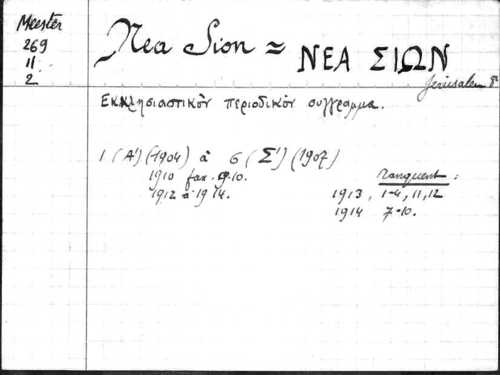 Meester
269
11
2
Nea Sion = ΝΕΑ ΣΙΩΝ
Jerusalem 8°
Εκκλησιαστικὸν περιοδικὸν σύγγραμμα.
1 (A') (1904) à 6 (Σ') (1907)
1910 fax. 9-10.
1912 à 1914.
manquent :
1913, 1-4, 11, 12
1914 7-10.